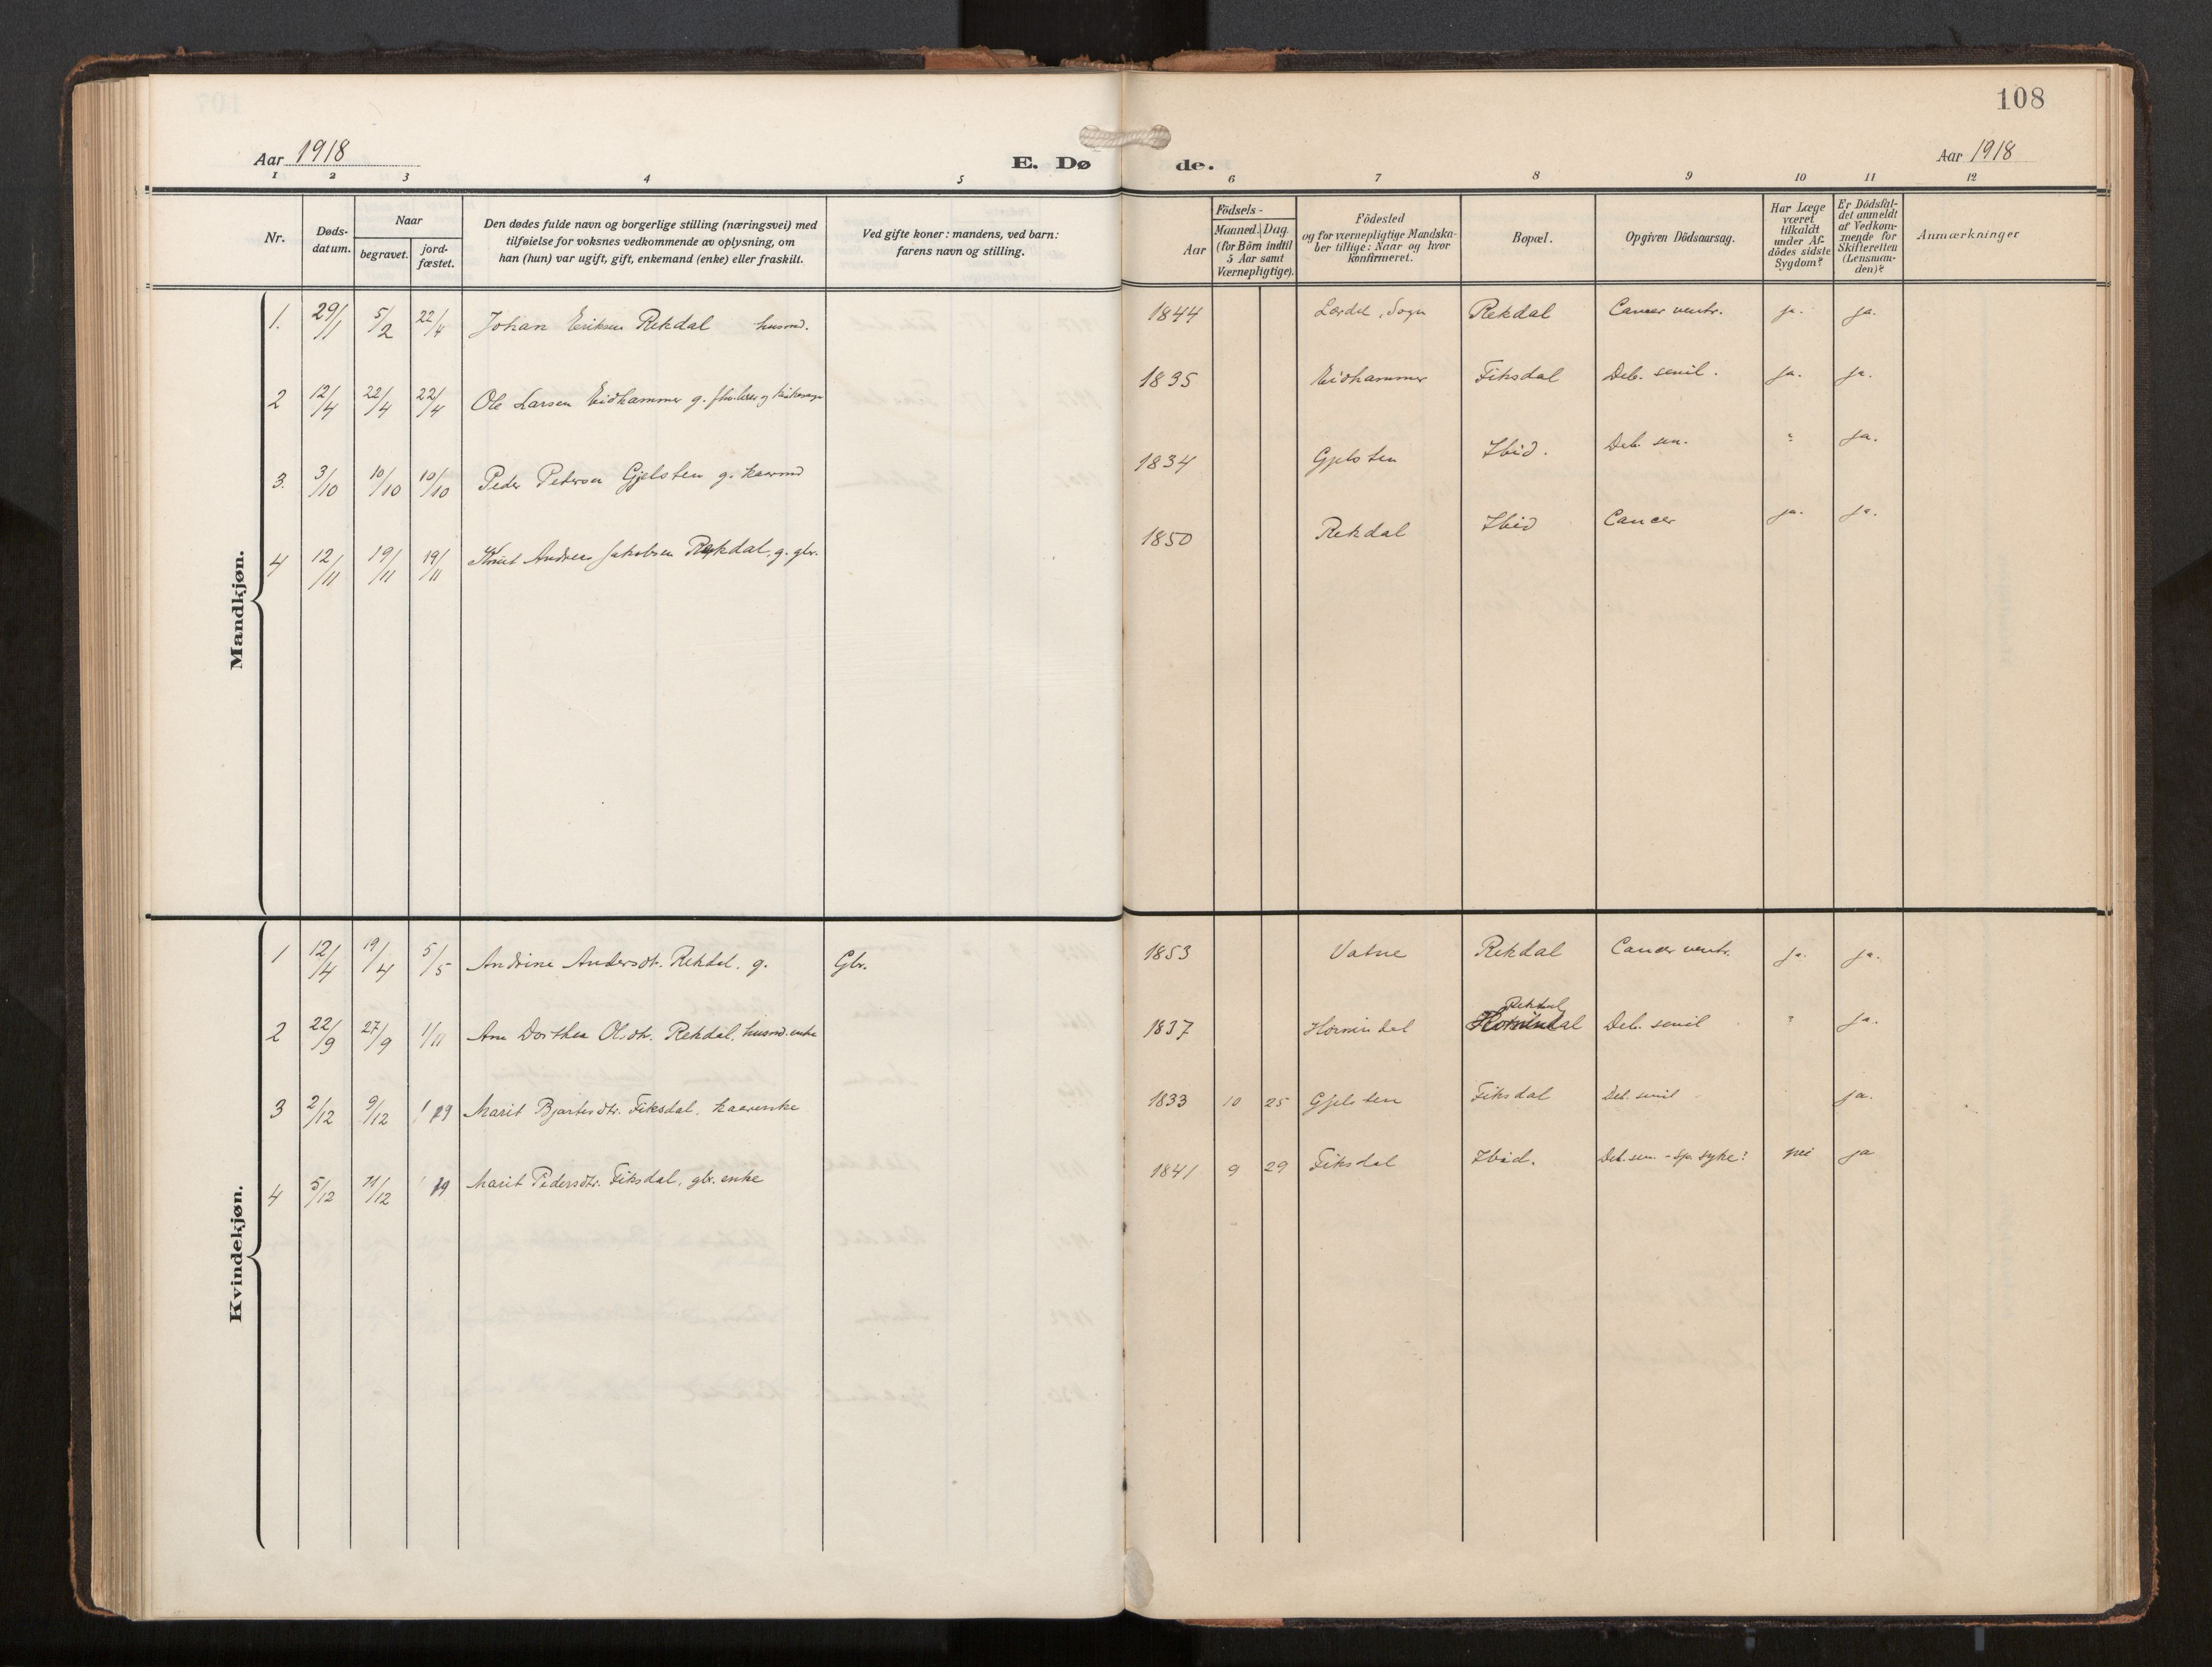 108
Aar 1918
E. Døde.
Aar 1918
1 2 3 4 5 6 7 8 9 10 11 12
Nr.
Dødsdatum.
Naar
begravet.
jordfæstet.
Den dødes fulde navn og borgerlige stilling (næringsvei) med
tilføielse for voksnes vedkommende av oplysning, om
han (hun) var ugift, gift, enkemand (enke) eller fraskilt.
Ved gifte koner: mandens, ved barn:
farens navn og stilling.
Aar
Födsels-
Maaned. Dag.
(for Börn indtil
5 Aar samt
Værnepligtige).
Födested
og for værnepligtige Mandska-
ber tillige: Naar og hvor
konfirmeret.
Bopæl.
Opgiven Dödsaarsag.
Har Læge
været
tilkaldt
under Af-
dödes sidste
Sygdom?
Er Dödsfal-
det anmeldt
af Vedkom-
mende for
Skifteretten
(Lensman-
den)?
Anmærkninger
Mandkjøn.
1. 29/1 5/2 22/4 Johan Eriksen Rekdal husmd. 1844 Lærdal, Sogn Rekdal Cancer ventr. ja. ja.
2 12/4 22/4 22/4 Ole Larsen Eidhammer g. og 1835 Eidhammer Fiksdal Deb. senil. ja. ja.
3. 3/10 10/10 10/10 Peder Petersen Gjelsten g. kaarmd 1834 Gjelsten Ibid. Deb. sen. ? ja.
4 12/11 19/11 19/11 Knut Andreas Jakobsen Rekdal, g. gbr. 1850 Rekdal Ibid Cancer ja. ja.
Kvindekjøn.
1 12/4 19/4 5/5 Andrine Andersdtr. Rekdal. g. Gbr. 1853 Vatne Rekdal Cancer ventr. ja. ja.
2 22/9 27/9 1/11 Ane Dorthea Olsdtr. Rekdal. husmd. enke 1837 Hornindal Rekdal Hornindal Deb. senil ? ja.
3 2/12 9/12 19 Marit Bjartesdtr. Fiksdal, kaarenke 1833 10 25 Gjelsten Fiksdal Deb. senil ja.
4 5/12 11/12 19 Marit Pedersdtr. Fiksdal, gbr. enke 1841 9 29 Fiksdal Ibid. Deb. sen. - sp. syke? nei ja